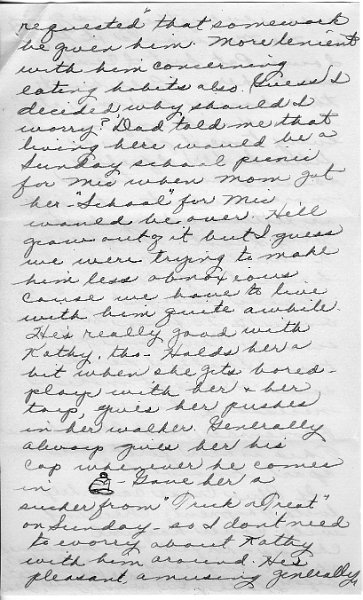 requested" that somework
be given him. More lenient
with him concerning
eating habits also. Guess I
decided, why should I
worry? Dad told me that
living here would be a
Sunday school picnic
for Mic when Mom got
her "School" for Mic
would be over. He'll
grow out of it but I guess
we were trying to make
him less obnoxious
cause we have to live
with him quite awhile.
He's really good with
Kathy, tho- Holds her a
bit when she gits bored-
plays with her & her
toys, gives her pushes
in her walker. Generally
always gives her his
cap whenever he comes
in - Gave her a
sucker from "Trick n Treat"
on Sunday - so I dont need
to worry about Kathy
with him around. He's
pleasant & amusing generally,